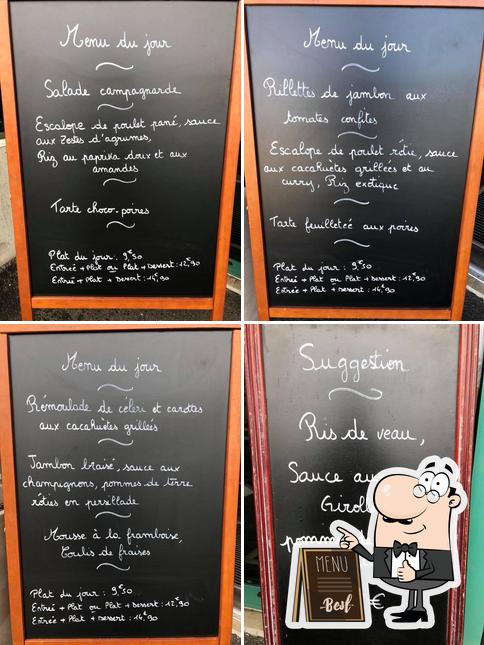 Menu du jour
Salade campagnarde
Escalope de poulet pané, sauce
aux zestes d'agrumes,
Riz au paprika doux et aux
amandes
Tarte choco-poires
Plat du jour : 9€50
Entrée + Plat ou Plat + Dessert : 12€90
Entrée + Plat + Dessert : 14€90
Menu du jour
Rillettes de jambon aux
tomates confites
Escalope de poulet rôtie, sauce
aux cacahuètes grillées et au
curry, Riz exotique
Tarte feuilleteé aux poires
Plat du jour : 9€50
Entrée + Plat ou Plat + Dessert : 12€90
Entrée + Plat + Dessert : 14€90
Menu du jour
Rémoulade de céleri et carottes
aux cacahuètes grillés
Jambon braisé, sauce aux
champignons, pommes de terre
rôties en persillade
Mousse à la framboise,
Coulis de fraises
Plat du jour : 9€50
Entrée + Plat ou Plat + Dessert : 12€90
Entrée + Plat + Dessert : 14€90
Suggestion
Ris de veau,
Sauce au
Giroll
pomm
€
MENU
Best